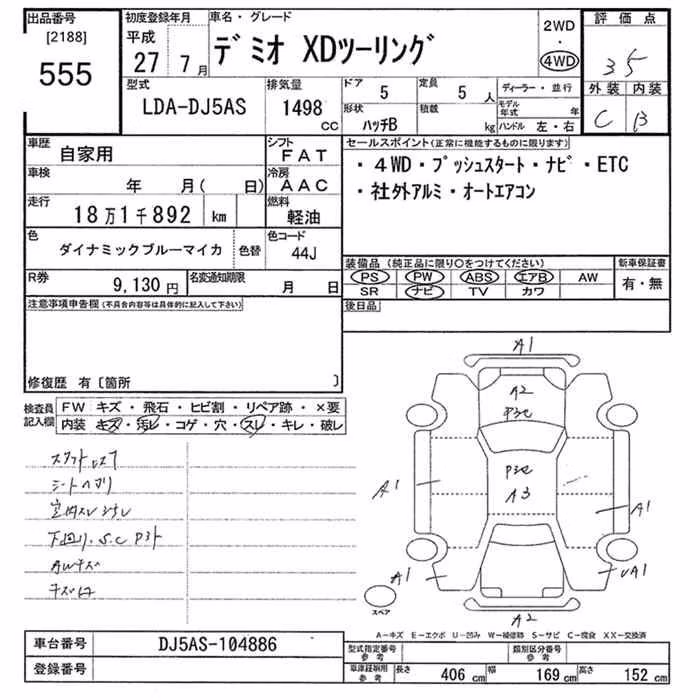 出品番号 初度登録年月 車名・グレード 2WD 評価点
[2188] 平成
555 27 7月 デミオ XDツーリング ・ 4WD 35
型式 排気量 ドア 定員 ディーラー・並行 外装 内装
LDA-DJ5AS 1498 CC 5 5人 モデル年式 年 C B
形状 積載 ハッチB kg ハンドル 左・右
車歴 自家用 シフト FAT セールスポイント(正常に機能するものに限ります)
車検 年 月( 日) 冷房 AAC ・4WD・プッシュスタート・ナビ・ETC
走行 18万1千892 km 燃料 軽油 ・社外アルミ・オートエアコン
色 ダイナミックブルーマイカ 色替 色コード 44J
装備品(純正品に限り○をつけてください) 新車保証書
R券 9,130円 名変通知期限 月 日 PS PW ABS エアB AW 有・無
SR ナビ TV カワ
注意事項申告欄(不具合内容等は具体的に記入して下さい) 後日品
修復歴 有〔箇所 〕
検査員記入欄 FW キズ・飛石・ヒビ割・リペア跡・×要
内装 キズ・汚レ・コゲ・穴・スレ・キレ・破レ
A1
A2
P3c
P3c
A3
A1
A1
A1
A1
A2
シートヘタリ
下回り・S.C P3ト
AWキズ
スペア
A-キズ E-エクボ U-凹み W-補修跡 S-サビ C-腐食 XX-交換済
車台番号 DJ5AS-104886 型式指定番号 参考 類別区分番号 参考
登録番号 車庫証明用 参考 長さ 406 cm 幅 169 cm 高さ 152 cm